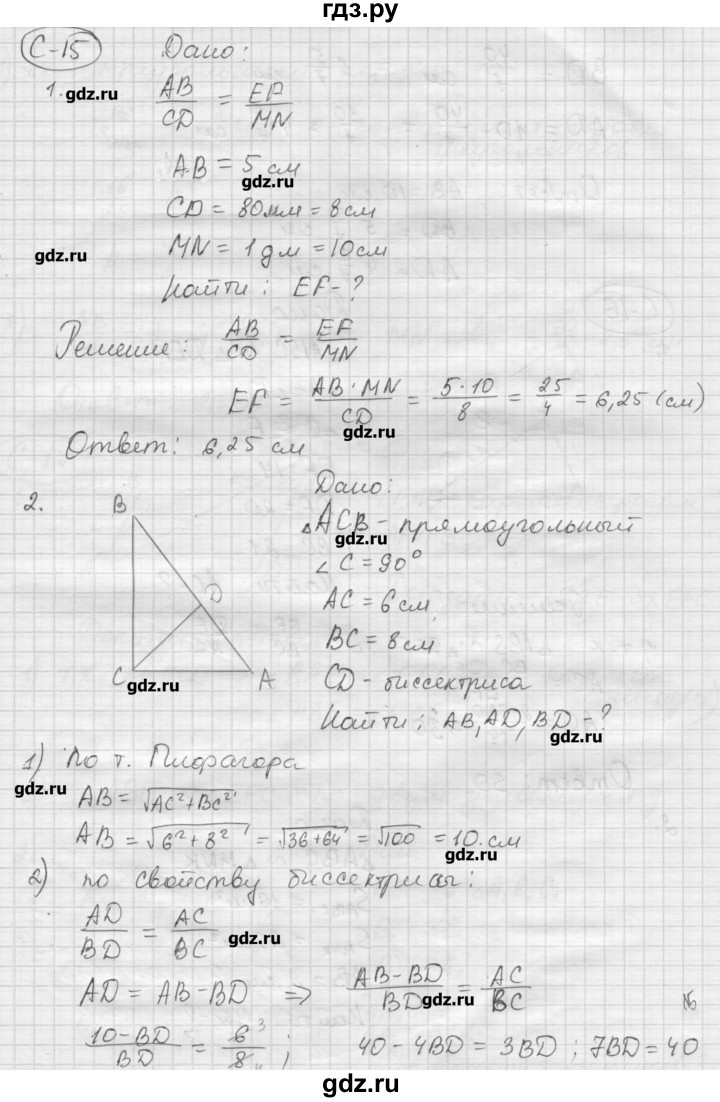 гдз.ру
С-15 Дано:
1. AB/CD = EF/MN
gdz.ru
AB = 5 см
gdz.ru
CD = 80мм = 8см
gdz.ru
MN = 1 дм = 10см
Найти: EF-?
Решение: AB/CD = EF/MN
EF = AB·MN/CD = 5·10/8 = 25/4 = 6,25 (см)
gdz.ru
Ответ: 6,25 см
2. B Дано:
△ACB - прямоугольный
gdz.ru
∠C = 90°
D AC = 6см
BC = 8см
C A CD - биссектриса
gdz.ru
Найти: AB, AD, BD -?
gdz.ru
1) По т. Пифагора
gdz.ru
AB = √AC²+BC²
AB = √6²+8² = √36+64 = √100 = 10 см
gdz.ru
2) по свойству биссектрисы:
AD/BD = AC/BC
gdz.ru
AD = AB-BD ⇒ AB-BD/BD = AC/BC
gdz.ru
10-BD/BD = 6³/8₄; 40-4BD = 3BD; 7BD = 40
gdz.ru